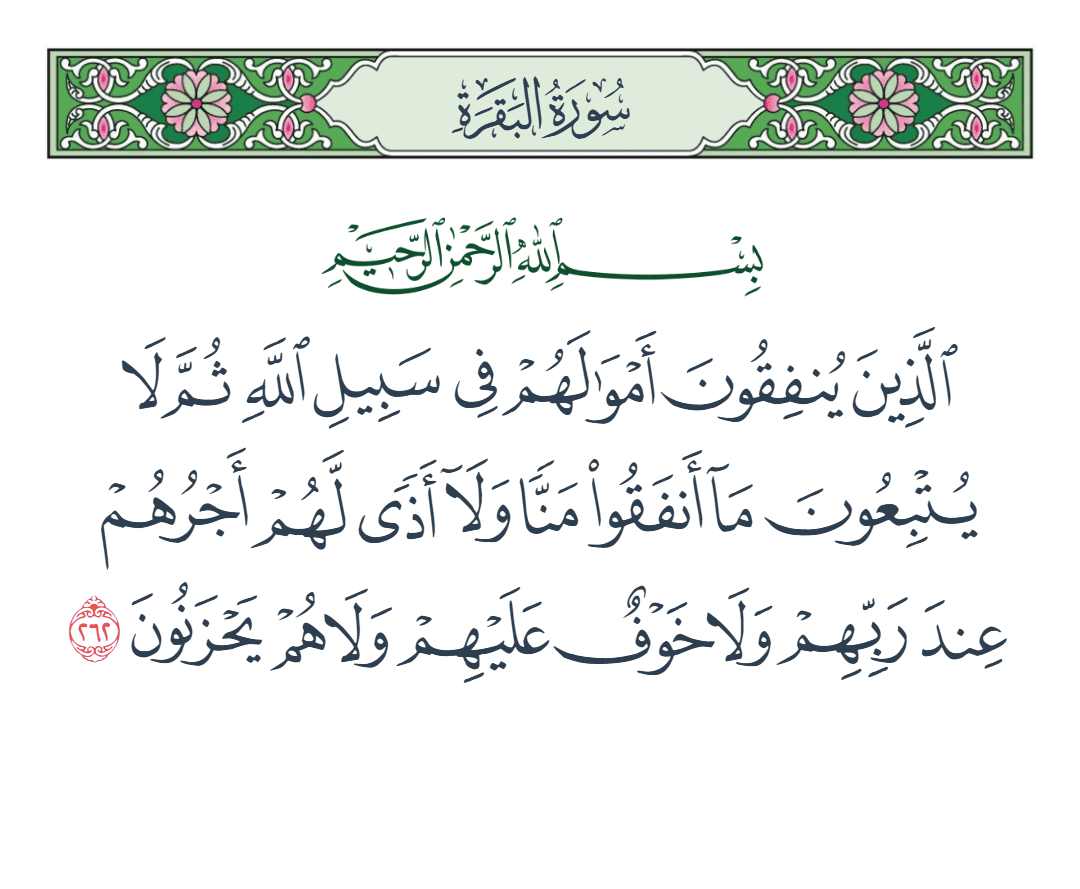 سُورَةُ البَقَرَةِ
بِسْمِ ٱللَّهِ ٱلرَّحْمَٰنِ ٱلرَّحِيمِ
ٱلَّذِينَ يُنفِقُونَ أَمْوَٰلَهُمْ فِى سَبِيلِ ٱللَّهِ ثُمَّ لَا
يُتْبِعُونَ مَآ أَنفَقُوا۟ مَنًّا وَلَآ أَذًى لَّهُمْ أَجْرُهُمْ
عِندَ رَبِّهِمْ وَلَا خَوْفٌ عَلَيْهِمْ وَلَا هُمْ يَحْزَنُونَ ٢٦٢